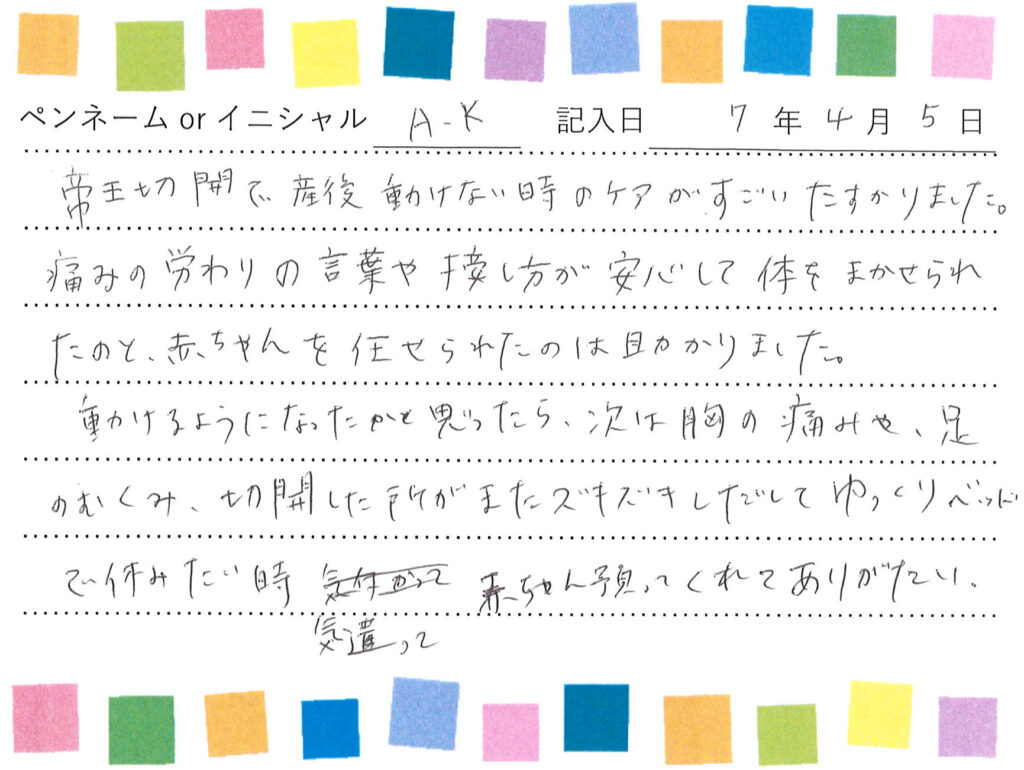 ペンネーム or イニシャル A-K 記入日 7年4月5日
帝王切開で、産後動けない時のケアがすごいたすかりました。
痛みの労わりの言葉や接し方が安心して体をまかせられ
たのと、赤ちゃんを任せられたのは助かりました。
動けるようになったかと思ったら、次は胸の痛みや、足
のむくみ、切開した所がまたズキズキしだしてゆっくりベッド
で休みたい時 気付かって 赤ちゃん預ってくれてありがたい.
気遣って